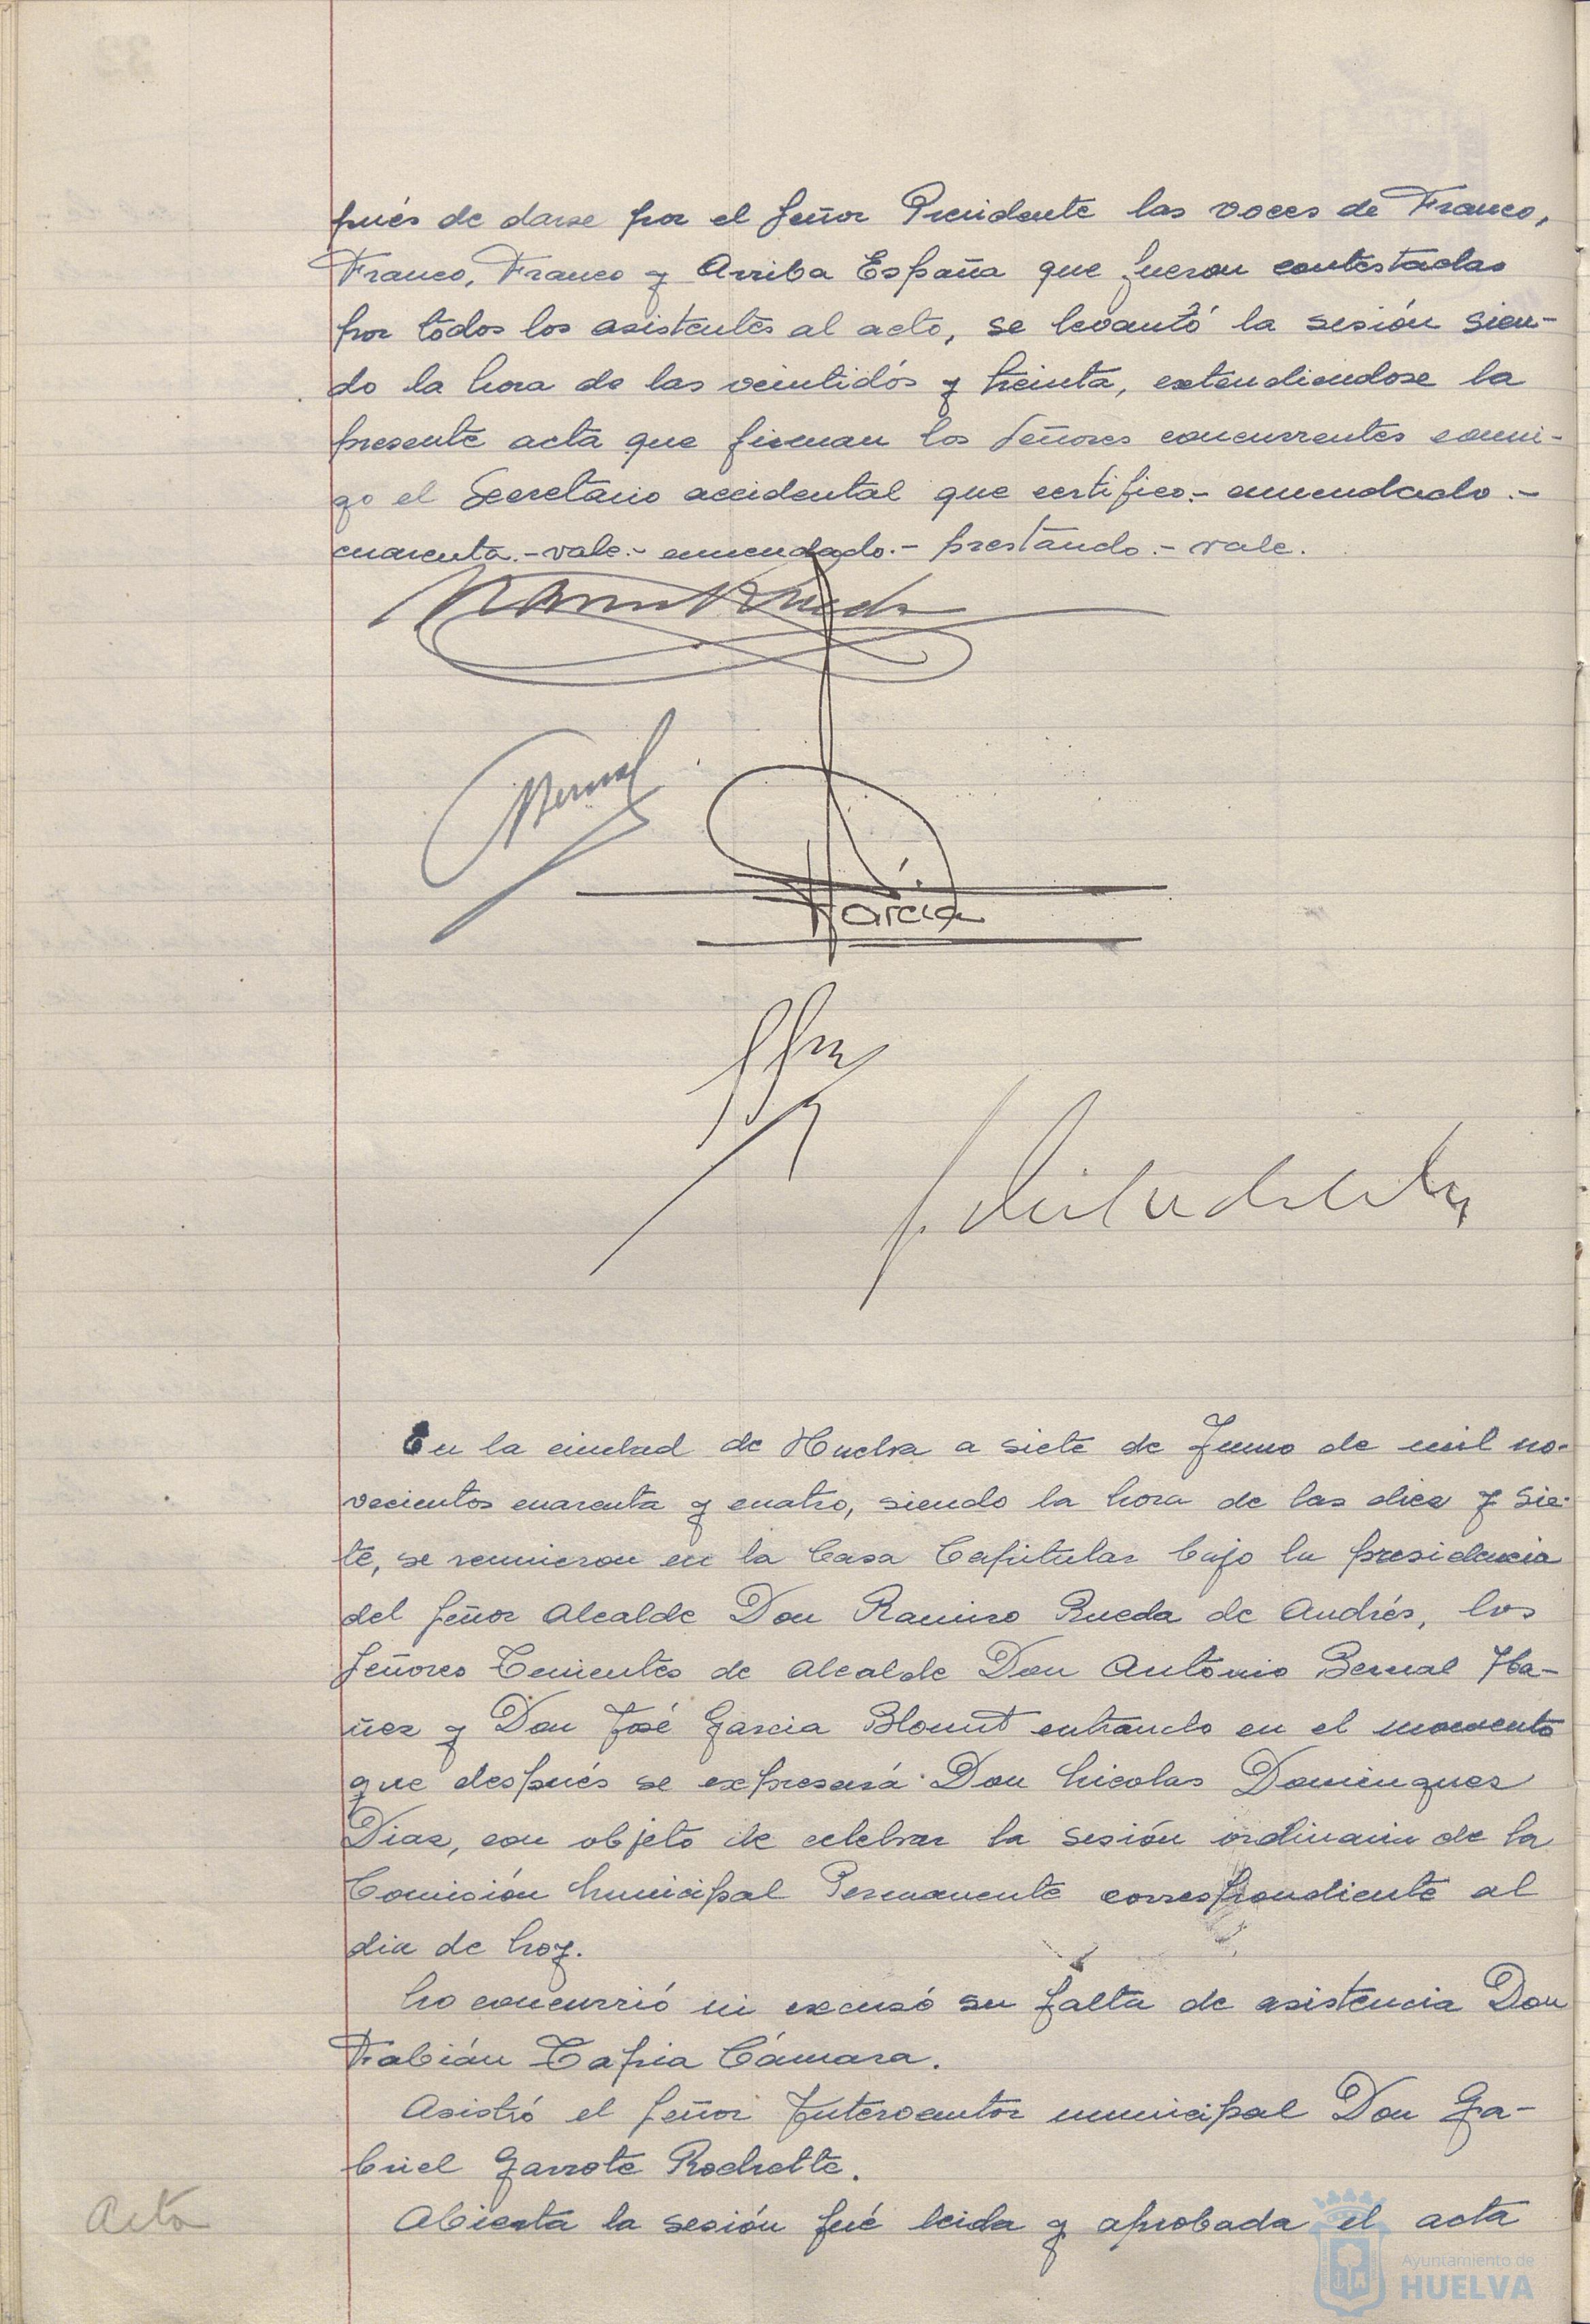 pués de darse por el Señor Presidente las voces de Franco,
Franco, Franco y Arriba España que fueron contestadas
por todos los asistentes al acto, se levantó la sesión sien-
do la hora de las veintidós y treinta, extendiendose la
presente acta que firman los Señores concurrentes conmi-
go el Secretario accidental que certifico.- enmendado.-
cuarenta.- vale.- enmendado.- prestando.- vale.
Bernal
Garcia
En la ciudad de Huelva a siete de Junio de mil no-
vecientos cuarenta y cuatro, siendo la hora de las diez y sie-
te, se reunieron en la Casa Capitular bajo la presidencia
del Señor Alcalde Don Ramiro Rueda de Andrés, los
Señores Tenientes de Alcalde Don Antonio Bernal Iba-
ñez y Don José Garcia Blount entrando en el momento
que después se expresará Don Nicolas Dominguez
Diaz, con objeto de celebrar la sesión ordinaria de la
Comisión Municipal Permanente correspondiente al
dia de hoy.
No concurrió ni excusó su falta de asistencia Don
Fabián Tapia Cámara.
Asistió el Señor Interventor municipal Don Ga-
briel Garrote Rochette.
Acta
Abierta la sesión fué leida y aprobada el acta
Ayuntamiento de
HUELVA